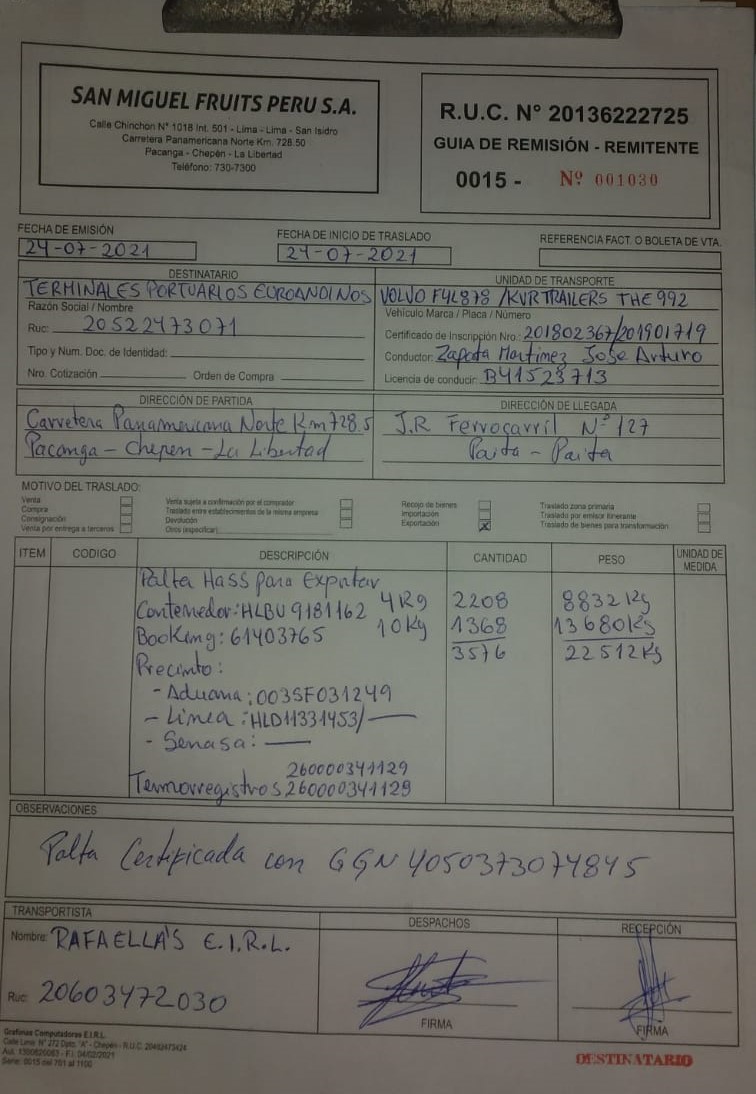 SAN MIGUEL FRUITS PERU S.A.
Calle Chinchon N° 1018 Int. 501 - Lima - Lima - San Isidro
Carretera Panamericana Norte Km. 728.50
Pacanga - Chepén - La Libertad
Teléfono: 730-7300
R.U.C. N° 20136222725
GUIA DE REMISIÓN - REMITENTE
0015 - Nº 001030
FECHA DE EMISIÓN
24-07-2021
FECHA DE INICIO DE TRASLADO
24-07-2021
REFERENCIA FACT. O BOLETA DE VTA.
DESTINATARIO
TERMINALES PORTUARIOS EUROANDINOS
Razón Social / Nombre
Ruc: 20522473071
Tipo y Num. Doc. de Identidad:
Nro. Cotización Orden de Compra
UNIDAD DE TRANSPORTE
VOLVO F4L878 /KVR TRAILERS THE 992
Vehículo Marca / Placa / Número
Certificado de Inscripción Nro.: 201802367/201901719
Conductor: Zapata Martinez Jose Arturo
Licencia de conducir: B41523713
DIRECCIÓN DE PARTIDA
Carretera Panamericana Norte Km 728.5
Pacanga - Chepen - La Libertad
DIRECCIÓN DE LLEGADA
J.R Ferrocarril N° 127
Paita - Paita
MOTIVO DEL TRASLADO:
Venta
Compra
Consignación
Venta por entrega a terceros
Venta sujeta a confirmación por el comprador
Traslado entre establecimientos de la misma empresa
Devolución
Otros (especificar)
Recojo de bienes
Importación
Exportación X
Traslado zona primaria
Traslado por emisor itinerante
Traslado de bienes para transformación
ITEM CODIGO DESCRIPCIÓN CANTIDAD PESO UNIDAD DE MEDIDA
Palta Hass para Exportar
Contenedor: HLBU 9181162 4Kg 2208 8832 Kg
Booking: 61403765 10Kg 1368 13680Kg
3576 22512Kg
Precinto:
- Aduana: 003SF031249
- Linea: HLD11331453/—
- Senasa: —
260000341129
Termorregistros 260000341129
OBSERVACIONES
Palta Certificada con GGN 4050373074845
TRANSPORTISTA
Nombre: RAFAELLA'S E.I.R.L.
Ruc: 20603472030
DESPACHOS
FIRMA
RECEPCIÓN
FIRMA
Calle Lima N° 272 Dpto. "A" - Chepén - R.U.C. 20482473424
Serie: 0015 del 701 al 1100
DESTINATARIO